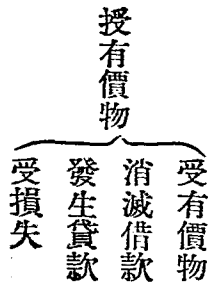 授有價物
受有價物
消滅借款
發生貸款
受損失